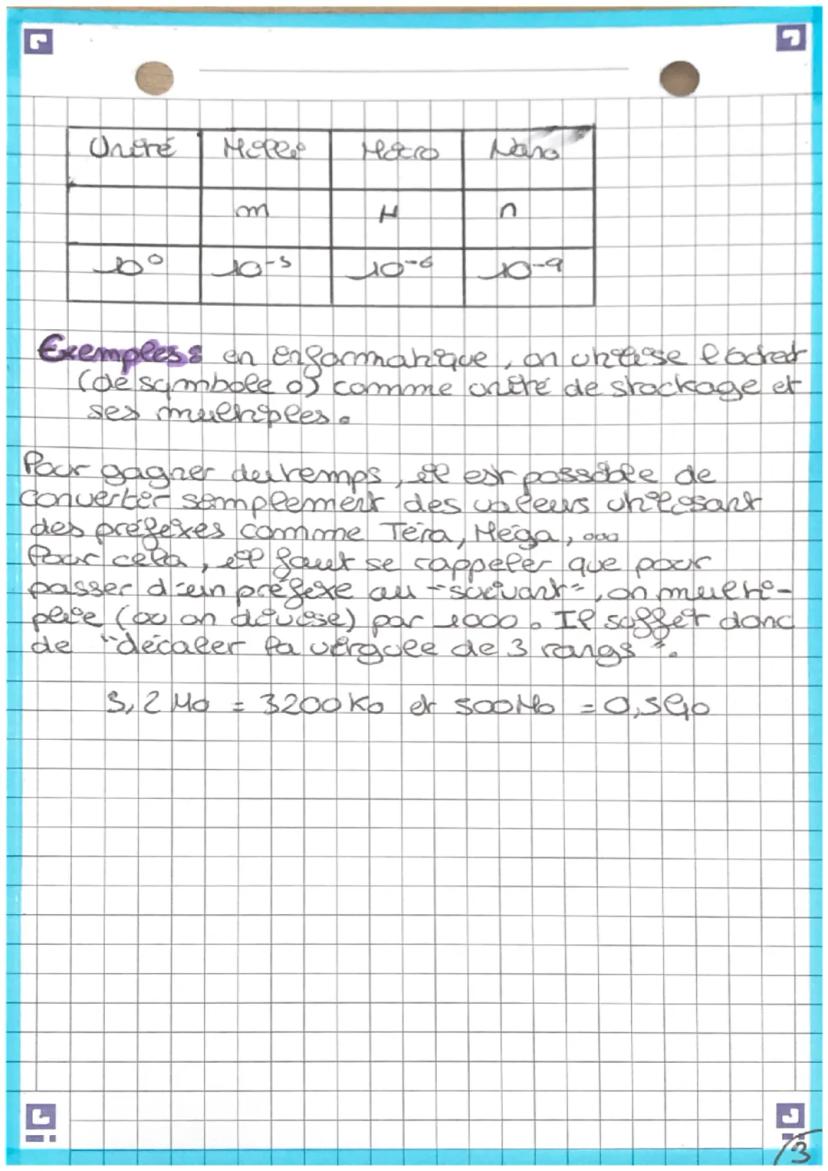 Unité Milli Micro Nano
m μ n
10⁰ 10⁻³ 10⁻⁶ 10⁻⁹
Exemples : en informatique, on utilise l'octet
(de symbole o) comme unité de stockage et
ses multiples.
Pour gagner du temps, il est possible de
converter simplement des valeurs utilisant
des préfixes comme Téra, Méga, ...
Pour cela, il faut se rappeler que pour
passer d'un préfixe au "suivant", on multi-
plie (ou on divise) par 1000. Il suffit donc
de "décaler la virgule de 3 rangs".
3,2 Mo = 3200 Ko et 500 Mo = 0,5 Go
/3